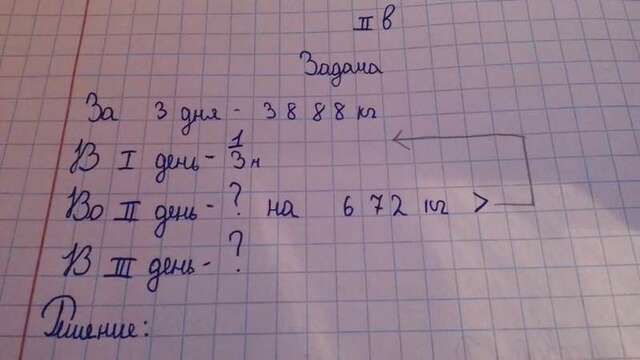 II в
Задача
За 3 дня - 3888 кг
В I день - 1/3 н
Во II день - ? на 672 кг >
В III день - ?
Решение: